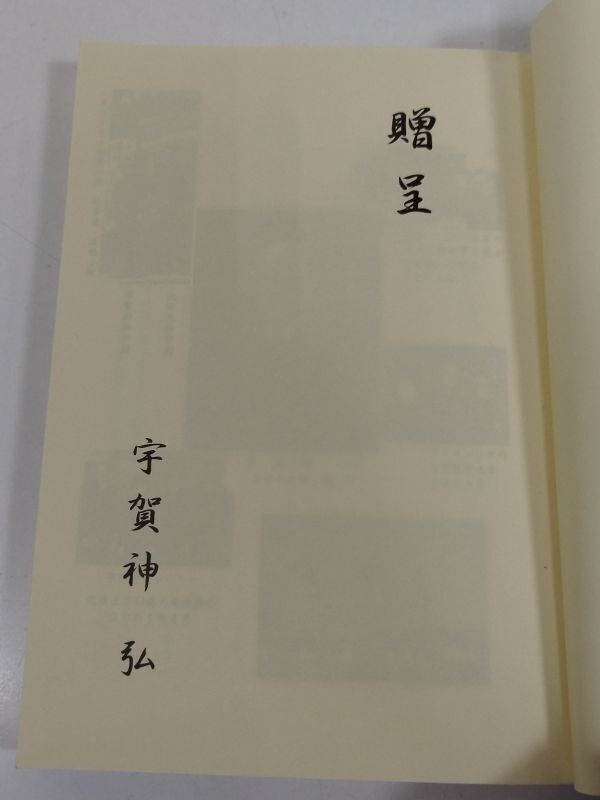 贈呈
宇賀神 弘